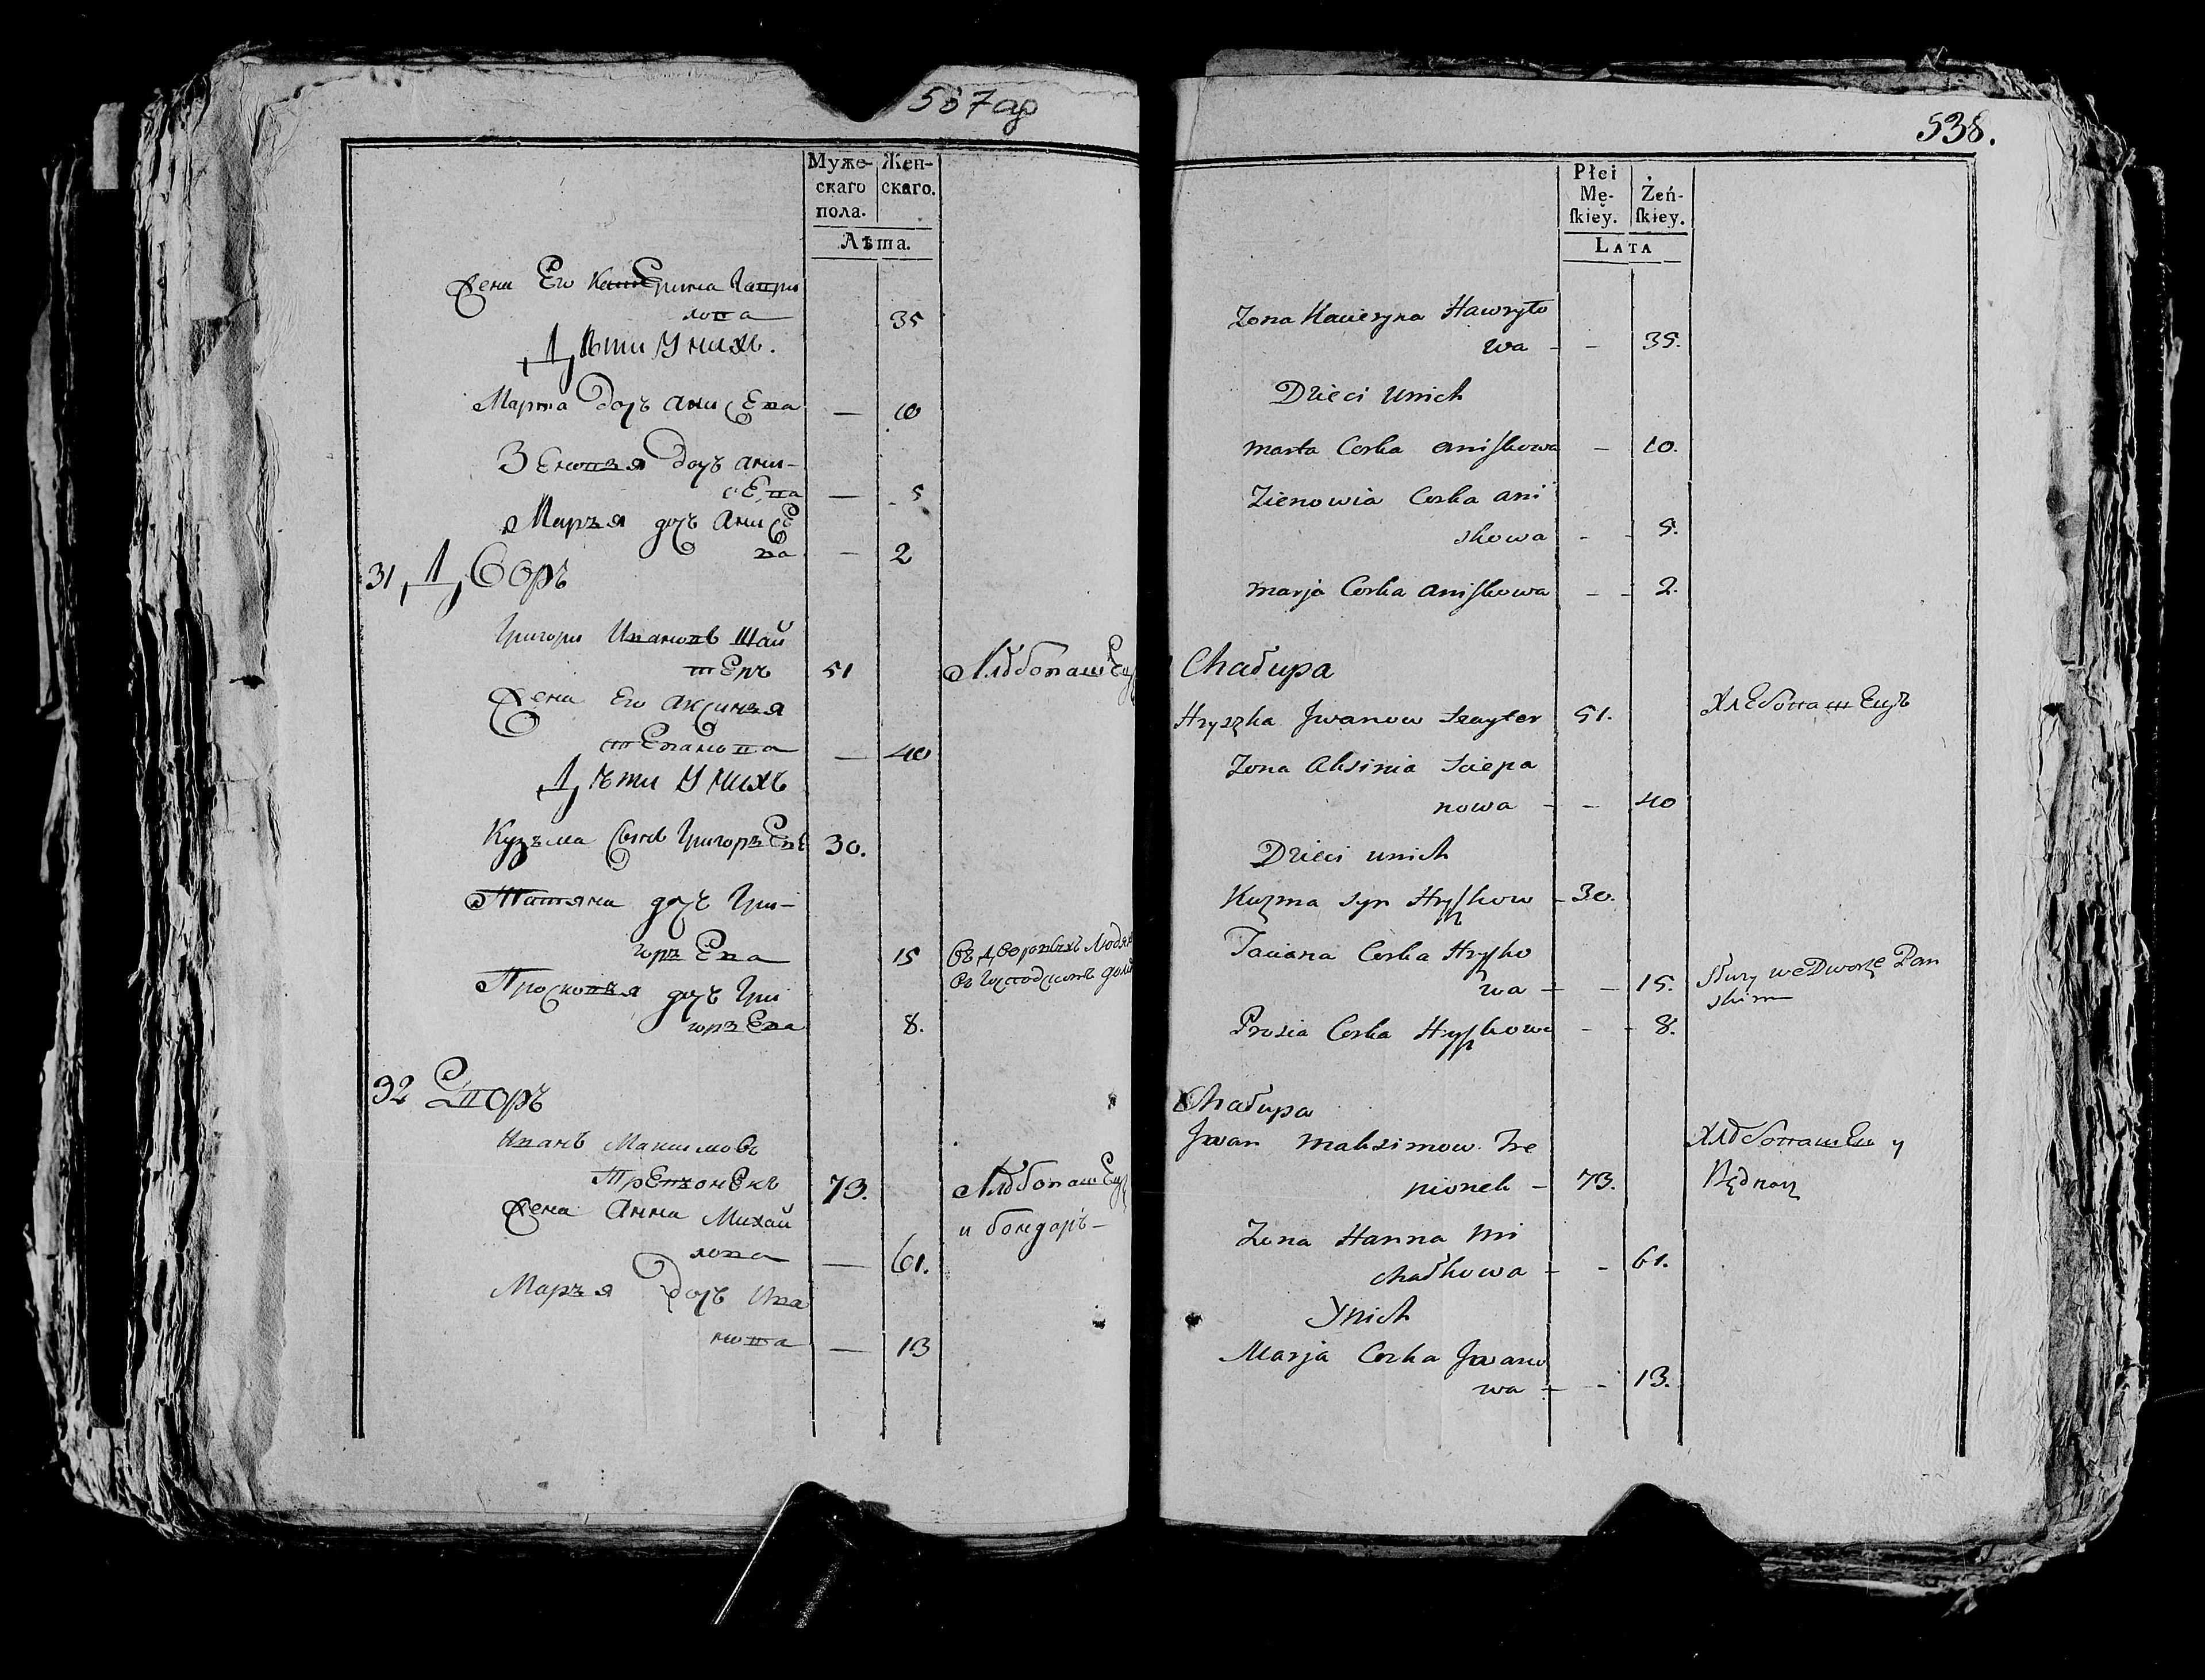 537 ар
Муже-
скаго
пола.
Жен-
скаго.
Лѣта.
Жена Его Катерина Гаври
лова 35
Дѣти У нихъ.
Марта дочъ анисева — 10
Зеновъя дочъ ани-
сева — 5
Маръя дочъ Анисе
ва — 2
31 Дворъ
Григори Ивановъ Шай
теръ 51 Хлѣбопашецъ
Жена Его аксинъя
степанова — 40
Дѣти У нихъ
Кузъма сынъ Григоръевъ 30.
Татяна дочъ Гри-
горъева 15 въ дворовыхъ людях
въ господскомъ доме
Просковъя дочъ Гри
горъева 8.
32 Дворъ
Иванъ Максимовъ
Тревъонекъ 73. Хлѣбопашецъ
и бондаръ-
Жена Анна Михай
лова — 61.
Маръя дочъ Ива
нова — 13
538.
Płci
Mę-
ſkiey.
Żeń-
ſkiey.
LATA
Zona Kacieryna Hawryło
wa - - 35.
Dzieci Unich
Marta Corka aniſkowa - 10.
Zienowia Corka ani
skowa - - 5.
Marja Corka aniſkowa - - 2.
Chałupa
Hryszka Jwanow Szayter 51. ХлЕбопашецъ
Zona Aksinia Sciepa
nowa - - 40
Dzieci unich
Kuzma syn Hryſzkow - 30.
Taciana Corka Hryſzko
wa - - 15. Słuzy we Dworze Pan
skim
Prosia Corka Hryſzkowa - - 8.
Chałupa
Jwan Maksimow Tre
pionek - 73. Хлѣбопашец y
Będnarz
Zona Hanna Mi
chałkowa - - 61.
Ynich
Marja Corka Jwano
wa - - 13.